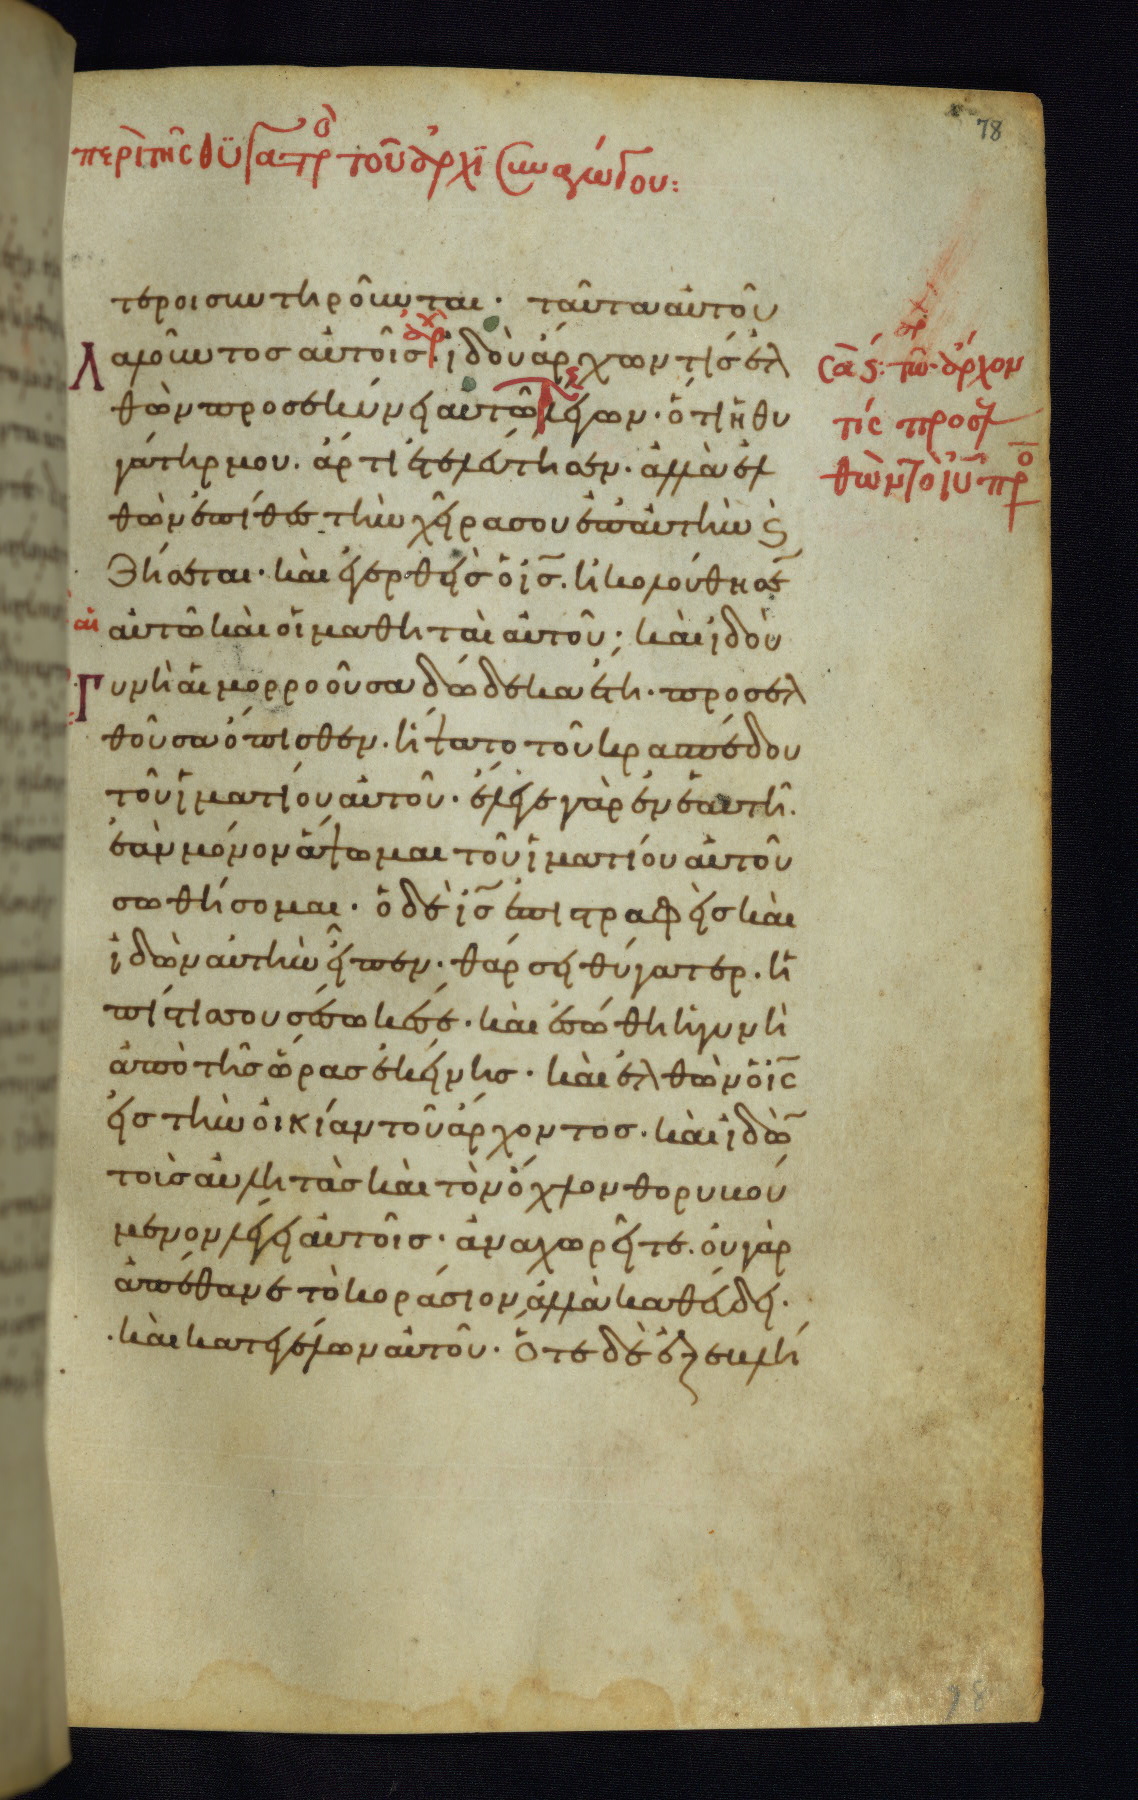 78
περὶ τῆς θυγατρὸ τοῦ ἀρχισυναγώγου:
τεροι συντηροῦνται· ταῦτα αὐτοῦ
Λαλοῦντος αὐτοῖς· ἰδοὺ ἄρχων τίς ἐλ
θὼν προσεκύνει αὐτῶ λέγων· ὅτι ἡ θυ
γάτηρ μου· ἄρτι ἐτελεύτησεν· ἀλλὰ ἐλ
θὼν ἐπίθες τὴν χεῖρα σου ἐπ αὐτὴν ϛ
ζήσεται· καὶ ἐγερθεὶς ὁ ις̅· ἠκολούθησε
αὐτῶ καὶ οἱ μαθηταὶ αὐτοῦ; καὶ ἰδοὺ
Γυνὴ αἱμορροοῦσα δώδεκα ἔτη· προσελ
θοῦσα ὄπισθεν· ἥψατο τοῦ κρασπέδου
τοῦ ἱματίου αὐτοῦ· ἔλεγε γὰρ ἐν ἑαυτῆ·
ἐὰν μόνον ἅψωμαι τοῦ ἱματίου αὐτοῦ
σωθήσομαι· ὁ δὲ ις̅ ἐπιστραφεὶς καὶ
ἰδὼν αὐτὴν εἶπεν· θάρσει θύγατερ· ἡ
πίστις σου σέσωκέ σε· καὶ ἐσώθη ἡ γυνὴ
ἀπὸ τῆς ὥρας ἐκείνης· καὶ ἐλθὼν ὁ ις̅
εἰς τὴν οἰκίαν τοῦ ἄρχοντος· καὶ ἰδὼ̅
τοὺς αὐλητὰς καὶ τὸν ὄχλον θορυβού
μενον λέγει αὐτοῖς· ἀναχωρεῖτε· οὐ γὰρ
ἀπέθανε τὸ κοράσιον ἀλλὰ καθεύδει·
καὶ κατεγέλων αὐτοῦ· Ὅτε δὲ ἐξεβλή
ἄρχων
τίς προσελ
θὼν